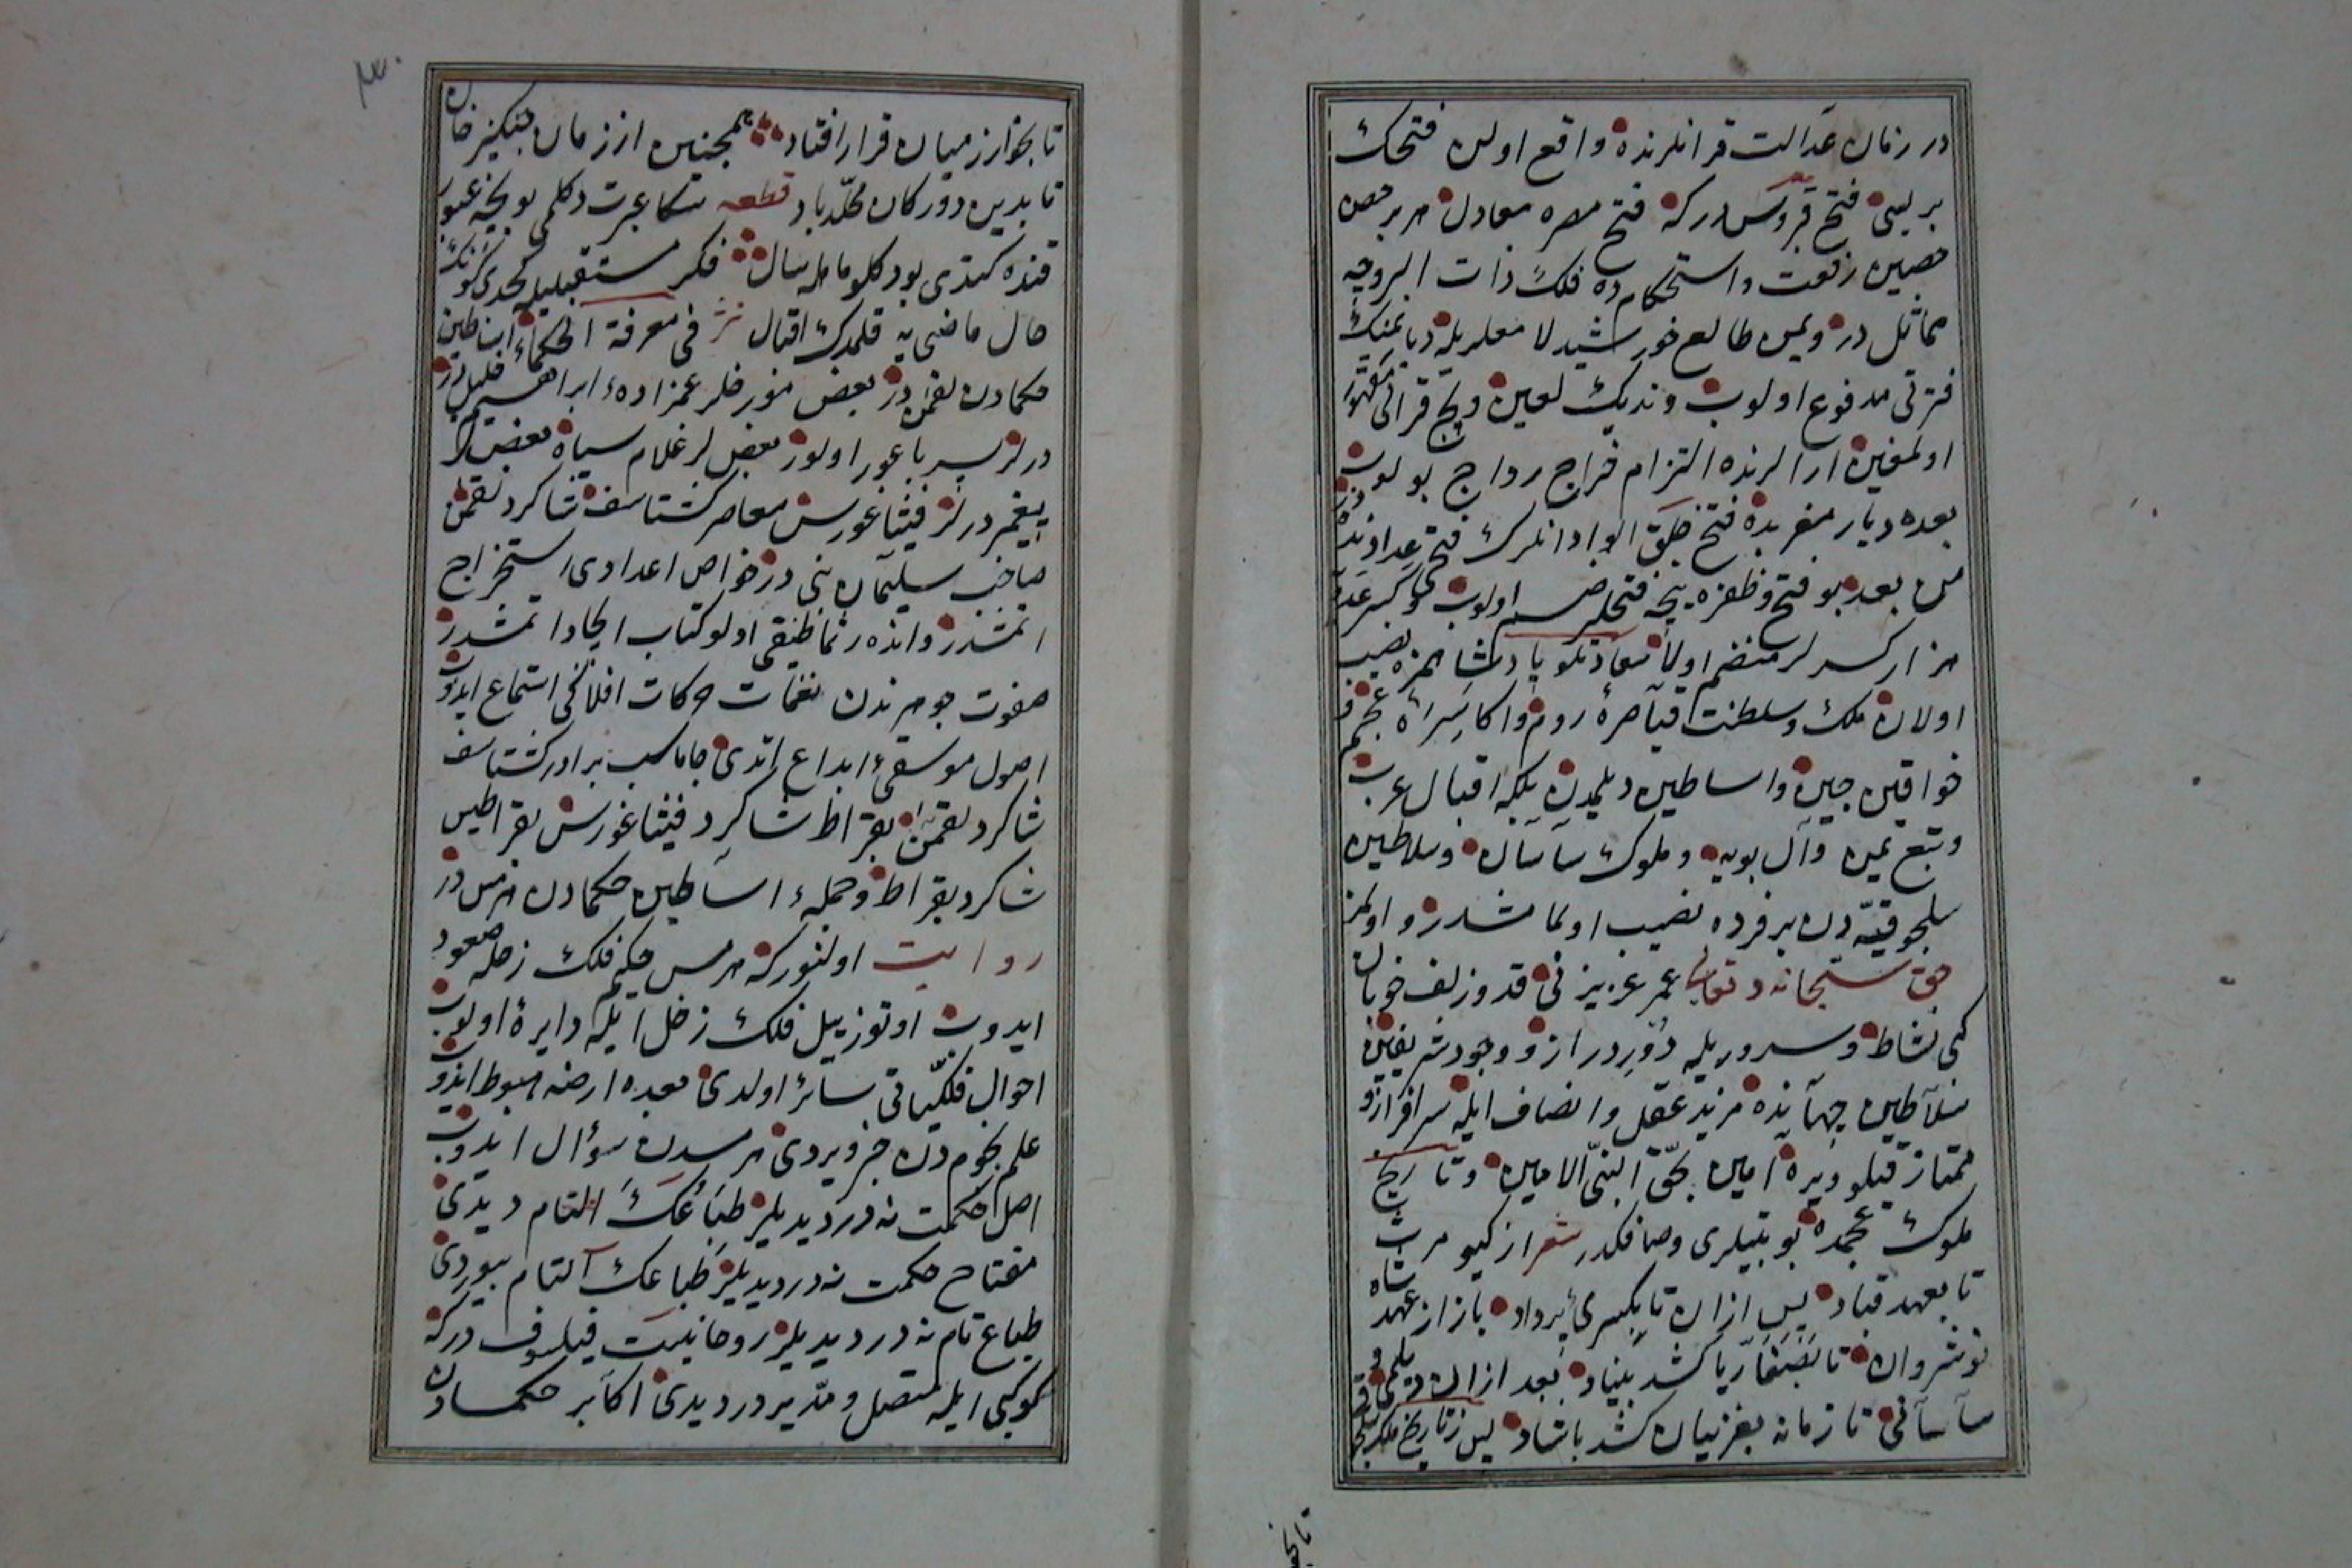 در زمان عدالت قرانلرنده واقع اولن فتحك
بريسى فتح قبروس دركه فتح مصره معادل هر بر حصن
حصين رفعت واستحكام ده فلك ذات البروجه
مماثل در ويمن طالع خورشيد لا معلريله ديا
فترتى مدفوع اولوب ونديك لعين وبج قرالى مقهور
اولمغين ارالرنده التزام خراج رواج بولوب
بعده ديار مغربده فتح خلق الواد انلرك فتح
من بعد بو فتح وظفره نيجه فتحلر ضم اولوب وكسر
هزار كسرلر منضم اولا سعادتلو پادشاهمزه نصيب
اولان ملك وسلطنت قياصرهٔ روم واكاسرهٔ عجم و
خواقين چين واساطين ديلمدن بلكه اقبال عرب
وتبع يمن وآل بويه وملوك ساسان وسلاطين
سلجوقيه دن بر فرده نصيب اولمامشدر و اولمز
حق سبحانه وتعالى عمر عزيزنى قد وزلف خوبان
كبى نشاط وسروريله دور دراز و وجود شريفين
سلاطين جهانده مزيد عقل وانصاف ايله سرافراز و
ممتاز قيلو ويره آمين بحق النبى الامين وتاريخ
ملوك عجمده بو بيتلرى وصافكدر شعر از كيومرث
تا بعهد قباد پس ازان تا بكسرى پرداد باز از عهد شاه
نوشروان تا شد بنياد بعد ازان ديلمى و
ساسانى تا زمانه بغزنيان كشد باشاد پس ز تاريخ ملك
تا بخوارزميان قرار افتاد همچنين از زمان جنكيز خان
تا بدين دور كان مخلد باد قطعه سكا عبرت دكلمى بو نيجه عبور
قنده كيتدى بو دكلو مامله سال فكر مستقبليله كجدى كونك
حال ماضى يه قلمدك اقبال نثر فى معرفة الحكماء اساطين
حكمادن لقمن در بعض مورخلر عمزادهء ابراهيم خليل در
درلر پسر باعور اولور بعضلر غلام سياه بعضلر
پيغمبر درلر فيثاغورس معاصر كشتاسف شاكرد لقمن
صاحب سليمان نبى در خواص اعدادى استخراج
اتمشدر وانده رثماطيقى اولو كتاب ايجاد اتمشدر
صفوت جوهرندن نغمات حركات افلاكى استماع ايدوب
اصول موسيقىء ابداع اتدى جاماسب برادر كشتاسف
شاكرد لقمن بقراط شاكرد فيثاغورس بقراطيس
شاكرد بقراط وجملهء اساطين حكمادن هرمس در
روايت اولنور كه هرمس حكيم فلك زحله صعود
ايدوب اوتوز ييل فلك زحل ايله دايره اولوب
احوال فلكياتى سائر اولدى بعده ارضه هبوط ايدوب
علم نجوم دن خبر ويردى هرمسدن سؤال ايدوب
اصل حكمت نه در ديديلر طباعك التام ديدى
مفتاح حكمت نه در ديديلر طباعك التام بيوردى
طباع تام نه در ديديلر روحانيت فيلسوف دركه
كوكبى ايله متصل ومدبر در ديدى اكابر حكمادن